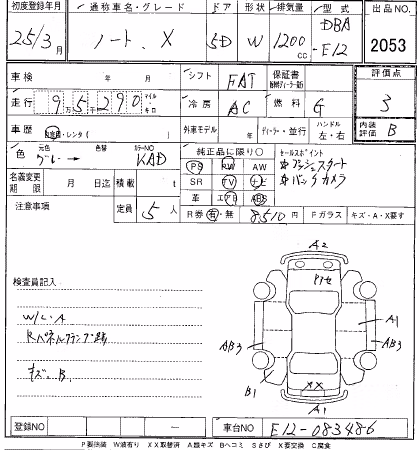 初度登録年月 通称車名・グレード ドア 形状 排気量 型式 出品NO.
25/3月 ノート X 5D W 1200cc DBA-E12 2053
車検 年 月 シフト FAT 保証書 評価点 3
走行 9万5千290 マイル・キロ 冷房 AC 燃料 G ハンドル 左・右 内装評価 B
車歴 自家用・レンタ 外車モデル 年 ディーラー・並行
色 元色 グレー → 色替 カラーNO KAD
純正品に限り○ セールスポイント
PS PW AW ☆プッシュスタート
SR TV ナビ ☆バックカメラ
革 エアB ABS
名義変更期限 月 日迄 積載 t
注意事項 定員 5人
R券 有・無 8,510円 Fガラス キズ・A・X要す
検査員記入
W/C・A
Rパネルフランプ跡
キズ・B.
A2
A1
AB3
AB3
B1
XX
A1
登録NO － 車台NO E12-083486
P要塗装 W波有り XX取替済 A線キズ Bヘコミ Sさび X要交換 C腐食